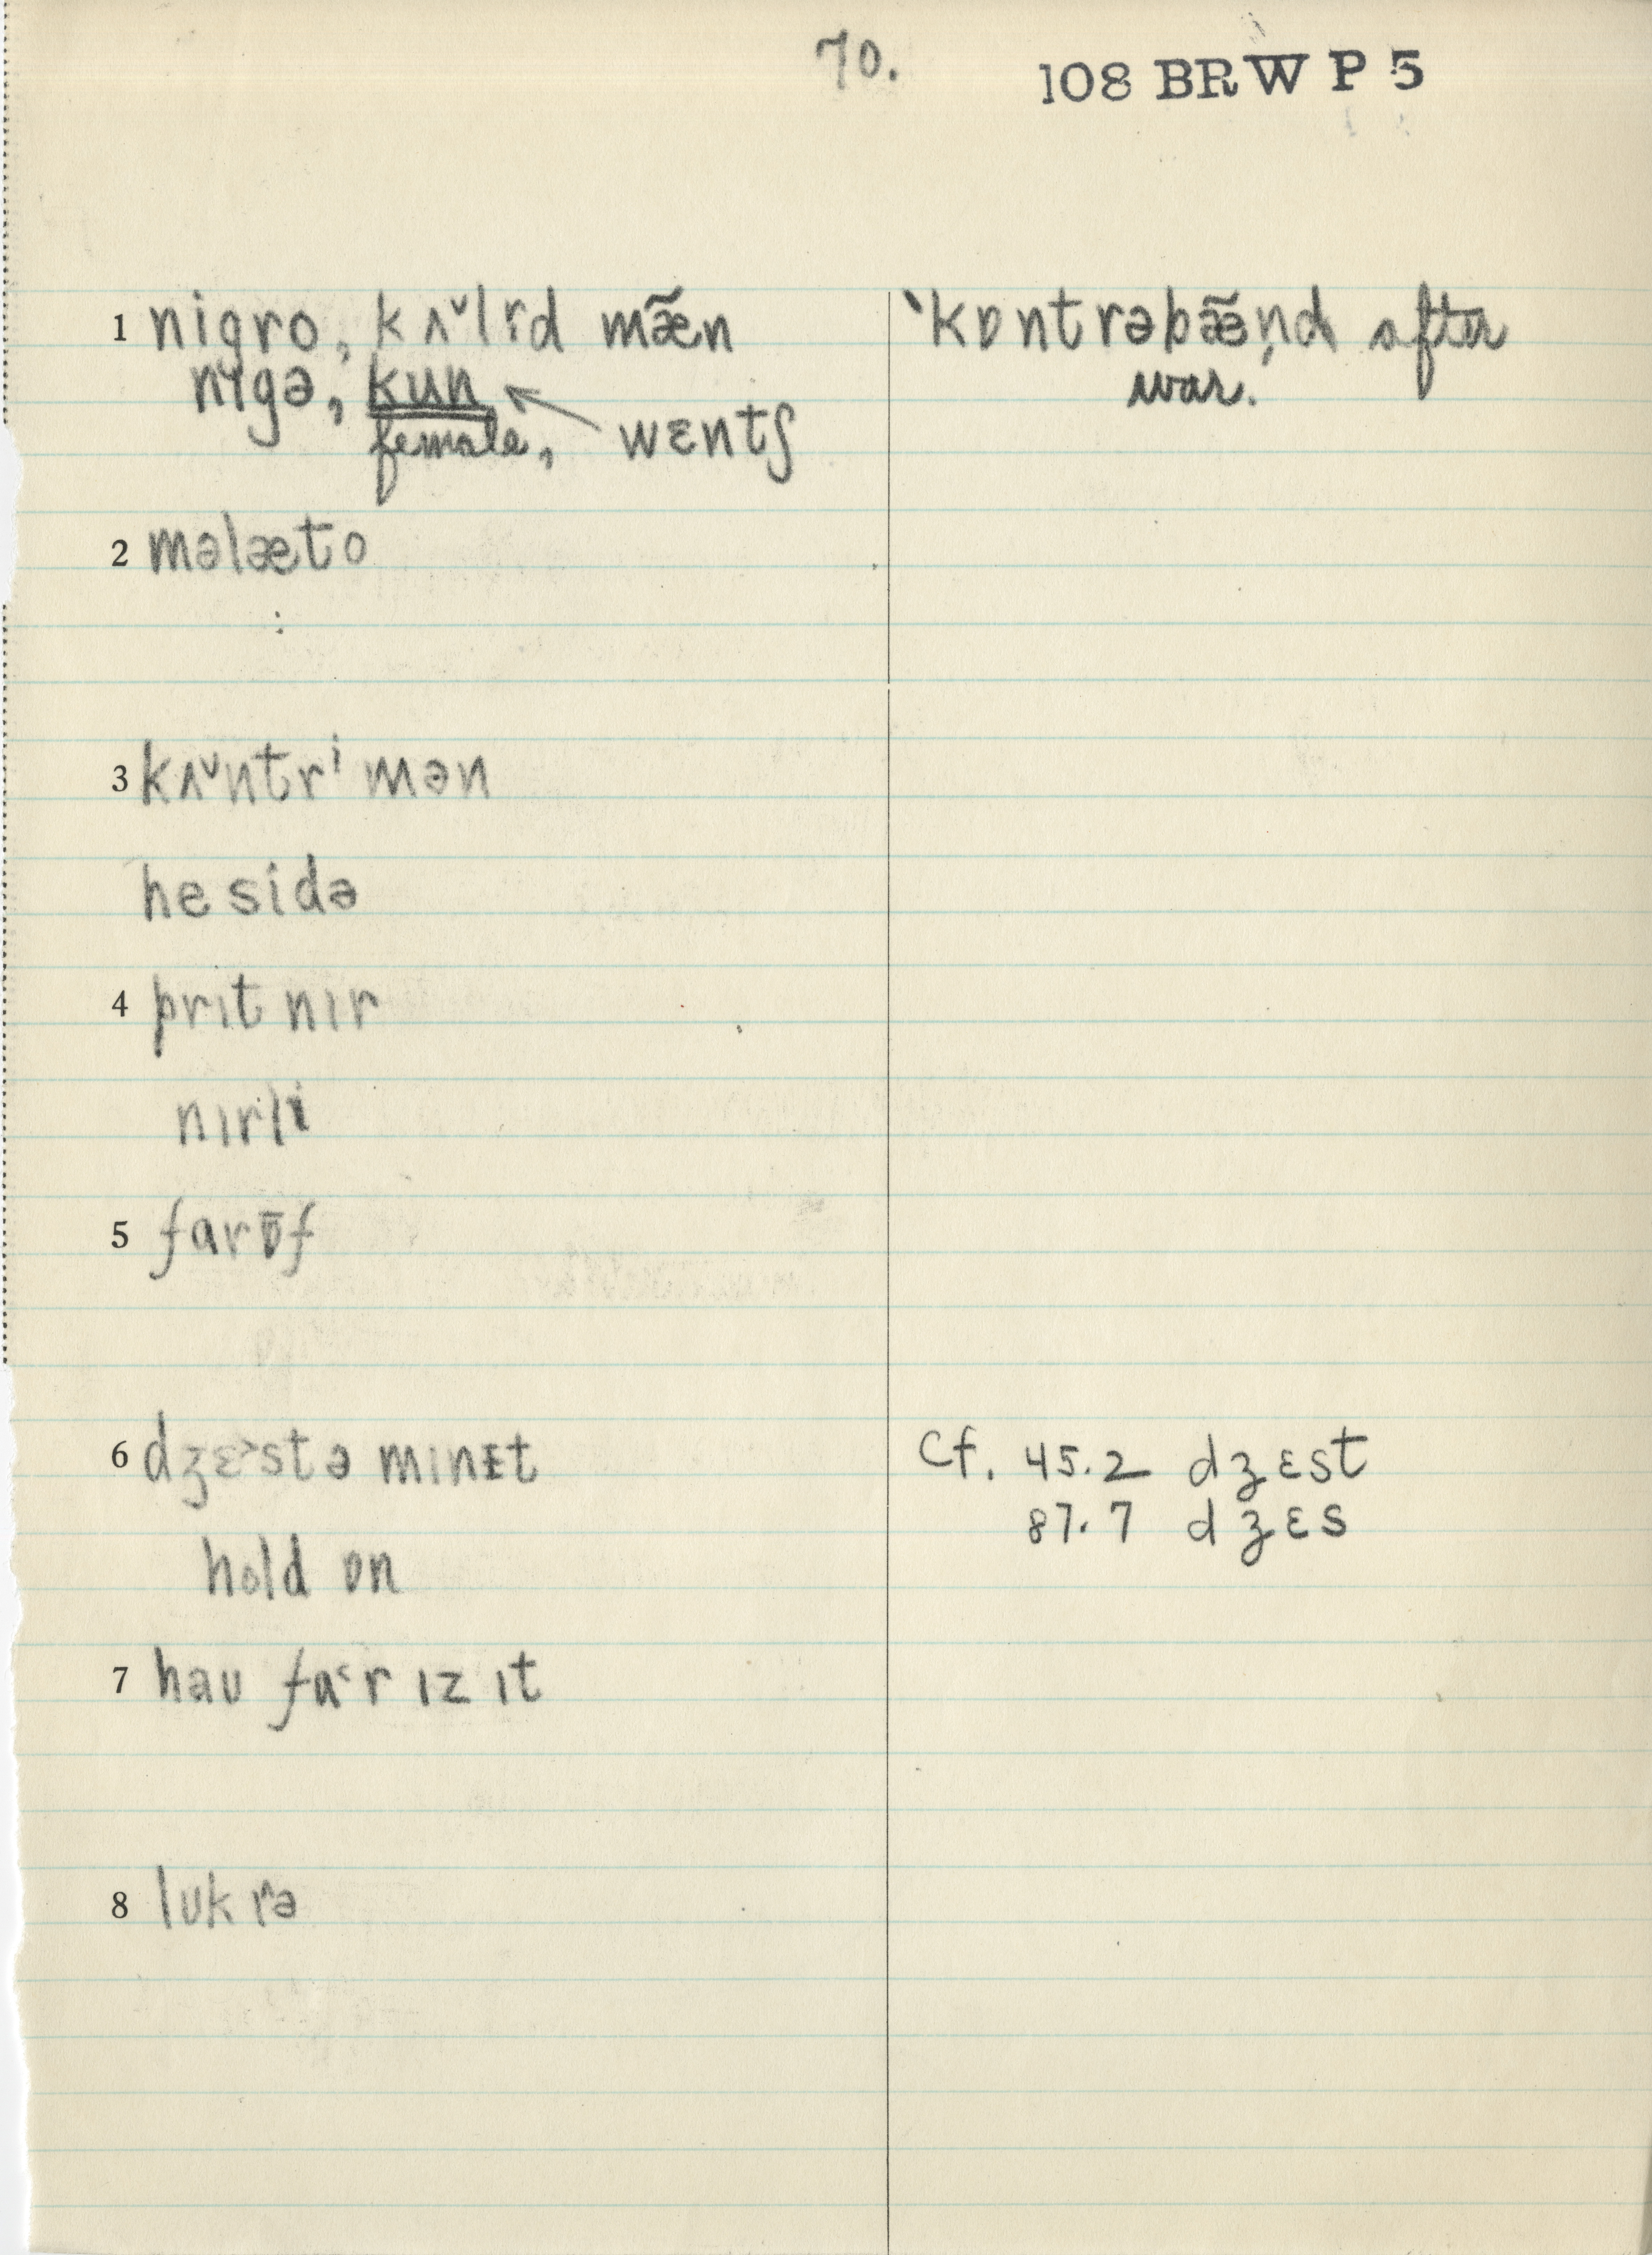 70.
108 BRW P 5
1 nigro, kʌ˅lɪ˞d mæ̃n
nɪgə, kun ← wɛntʃ
female,
ˈkɒntrəbæ̃n̩d after
war.
2 məlæto
3 kʌ˅ntrⁱ mən
he sidə
4 prɪt nɪr
nɪrli
5 farɒ̄f
6 dʒɛ˃stə mɪnɪt
Cf. 45.2 dʒɛst
87.7 dʒɛs
hold ɒn
7 hau fa˂r ɪz ɪt
8 luk rə